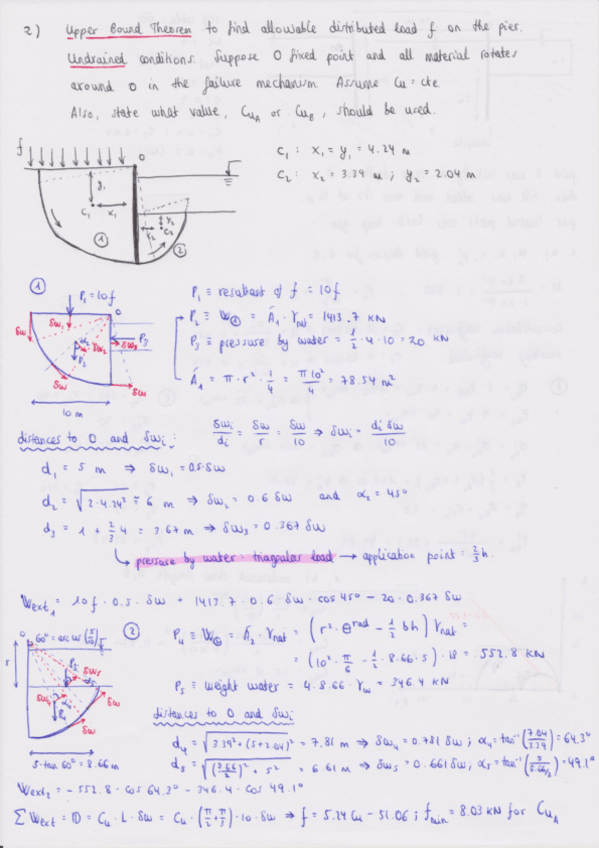 2) Upper Bound Theorem to find allowable distributed load f on the pier.
Undrained conditions. Suppose O fixed point and all material rotates
around O in the failure mechanism. Assume Cu = cte.
Also, state what value, CuA or CuB, should be used.
f
O
C1 : x1 = y1 = 4.24 m
C2 : x2 = 3.39 m ; y2 = 2.04 m
y1
C1
x1
y2
x2
C2
1
2
1
P1 = 10f
O
δw1
δw
α2
δw2
P2
δw3
P3
δw
δw
10 m
P1 ≡ resultant of f = 10f
P2 ≡ W1 = A1 · γnat = 1413.7 kN
P3 ≡ pressure by water = 1/2 · 4 · 10 = 20 kN
A1 = π · r² · 1/4 = π10²/4 = 78.54 m²
distances to O and δwi : δwi/di = δw/r = δw/10 ⇒ δwi = di δw/10
d1 = 5 m ⇒ δw1 = 0.5·δw
d2 = √2·4.24² ≈ 6 m ⇒ δw2 = 0.6 δw and α2 = 45°
d3 = 1 + 2/3 4 = 3.67 m ⇒ δw3 = 0.367 δw
pressure by water · triangular load → application point = 2/3 h.
Wext1 = 10f · 0.5 · δw + 1413.7 · 0.6 δw · cos 45° − 20 · 0.367 δw
2
O
60° = arc cos (5/10)
r
P5
δw5
α5
δw4
α4
P4
δw
δw
5·tan 60° = 8.66 m
P4 ≡ W2 = A2 · γnat = (r² · θrad − 1/2 bh) γnat =
= (10² · π/6 − 1/2 · 8.66 · 5) · 18 = 552.8 kN
P5 ≡ weight water = 4 · 8.66 · γw = 346.4 kN
distances to O and δwi
d4 = √3.39² + (5+2.04)² = 7.81 m ⇒ δw4 = 0.781 δw ; α4 = tan⁻¹(7.04/3.39) = 64.3°
d5 = √(8.66/2)² + 5² = 6.61 m ⇒ δw5 = 0.661 δw ; α5 = tan⁻¹(5/8.66/2) = 49.1°
Wext2 = −552.8 · cos 64.3° − 346.4 · cos 49.1°
∑ Wext = D = Cu · L · δw = Cu · (π/2 + π/3) · 10 · δw ⇒ f = 5.24 Cu − 51.06 ; fmin = 8.03 kN for CuA